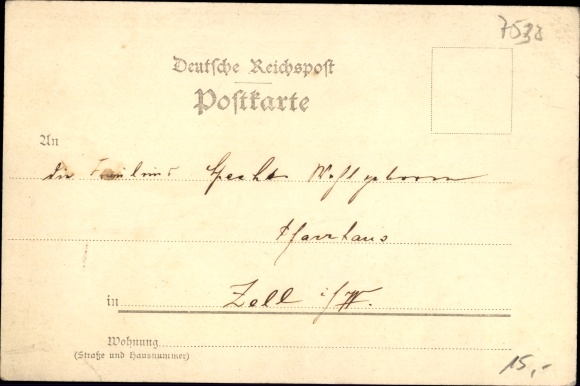 7538
Deutsche Reichspost
Postkarte
An
die Familie Specht Wohlgeboren
Pfarrhaus
in Zell i/W.
Wohnung
(Straße und Hausnummer)
15,-